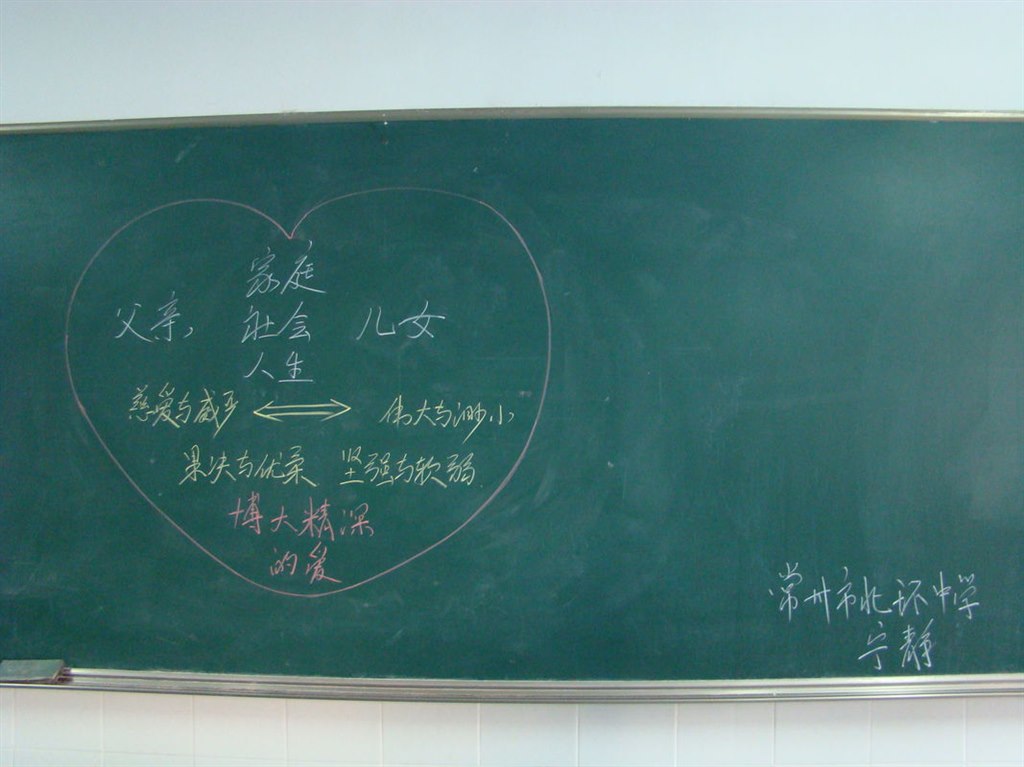 家庭
父亲 社会 儿女
人生
慈爱与威严 伟大与渺小
果决与优柔 坚强与软弱
博大精深
的爱
常州市北环中学
宁静